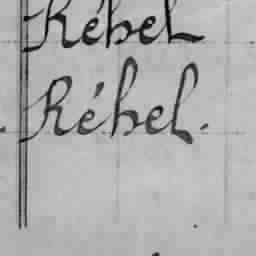 Rébel
Rébel.